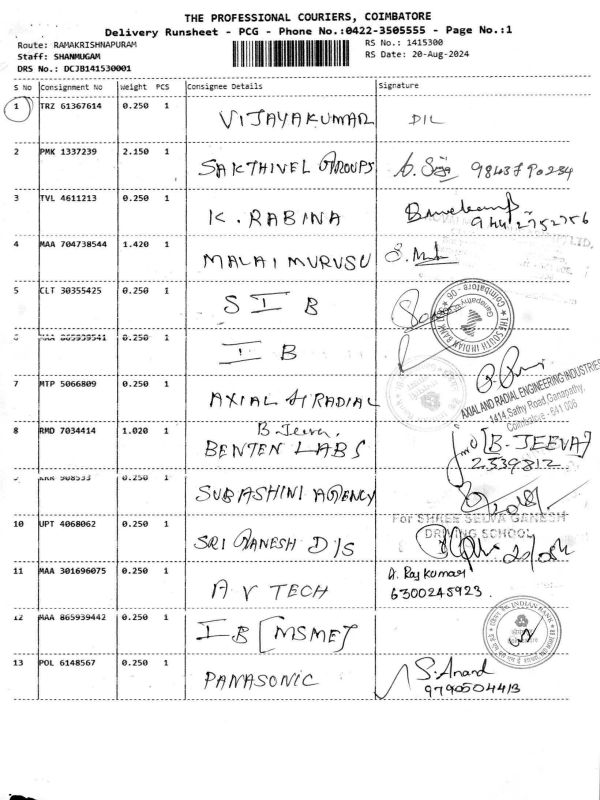 THE PROFESSIONAL COURIERS, COIMBATORE
Delivery Runsheet - PCG - Phone No.:0422-3505555 - Page No.:1
Route: RAMAKRISHNAPURAM
RS No.: 1415300
Staff: SHANMUGAM
RS Date: 20-Aug-2024
DRS No.: DCJB141530001
S No Consignment No Weight PCS Consignee Details Signature
1 TRZ 61367614 0.250 1 VIJAYAKUMAR DIL
2 PMK 1337239 2.150 1 SAKTHIVEL GROUPS
3 TVL 4611213 0.250 1 K. RABINA
9442752756
4 MAA 704738544 1.420 1 MALAI MURUSU
5 CLT 30355425 0.250 1 S I B
THE SOUTH INDIAN BANK
Ganapathy
Coimbatore - 06
6 MAA 865939541 0.250 1 I B
7 MTP 5066809 0.250 1 AXIAL & RADIAL
AXIAL AND RADIAL ENGINEERING INDUSTRIES
1414 Sathy Road Ganapathy,
Coimbatore - 641 006
8 RMD 7034414 1.020 1 B. Jeeva.
BENTEN LABS
[B. JEEVA]
2339812
9 908533 0.250 1 SUBASHINI AGENCY
10 UPT 4068062 0.250 1 SRI GANESH D/S
For SHREE SELVA GANESH
DRIVING SCHOOL
11 MAA 301696075 0.250 1 A V TECH
A. Raj Kumar
6300245923.
12 MAA 865939442 0.250 1 I B [MSME]
INDIAN BANK
13 POL 6148567 0.250 1 PANASONIC
S. Anand
9790504413